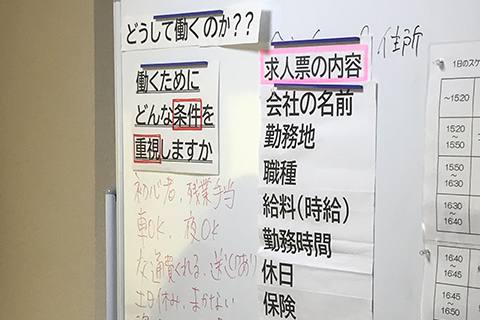 どうして働くのか？？
働くために
どんな条件を
重視しますか
初心者、残業手当
車OK、夜OK
交通費くれる、送りあり
土日休み、まかない
住所
求人票の内容
会社の名前
勤務地
職種
給料（時給）
勤務時間
休日
保険
1日のスケ
～1520
1520
～
1550
1550
～
1630
1630
～
1640
1640
～
1645
1645